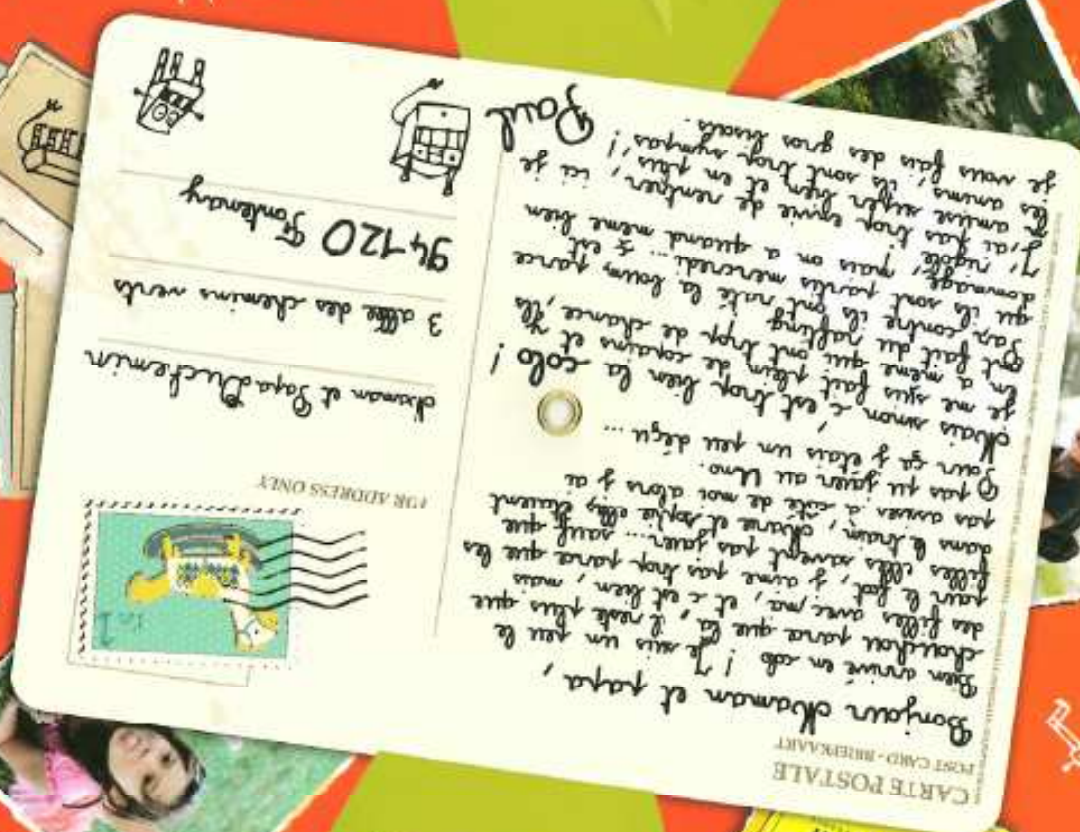 CARTE POSTALE
POST CARD - BRIEFKAART
Bonjour Maman et papa,
Bien arrivé en colo ! Je suis un peu le
chouchou parce que là, il reste plus que
des filles avec moi, et c'est bien, mais
pour le foot, j'aime pas trop parce que les
filles elles savent pas jouer... sauf que
dans le train, Marie et Sophie elles étaient
pas assez à côté de moi alors j'ai
pas pu jouer au Uno.
Pour ça j'étais un peu déçu ...
Mais sinon c'est trop bien la colo !
Je me suis fait plein de copains et y
en a même qui ont trop de chance, ils
ont fait du rafting
Par contre ils ont raté la boum, parce
qu'ils sont partis mercredi... c'est
dommage, mais on a quand même bien
rigolé !
J'ai pas trop envie de rentrer, ici je
m'amuse super bien et en plus,
les anims, ils sont trop sympas !
Je vous fais des gros bisous.
Paul
FOR ADDRESS ONLY
Maman et Papa Duchemin
3 allée des chemins verts
94120 Fontenay